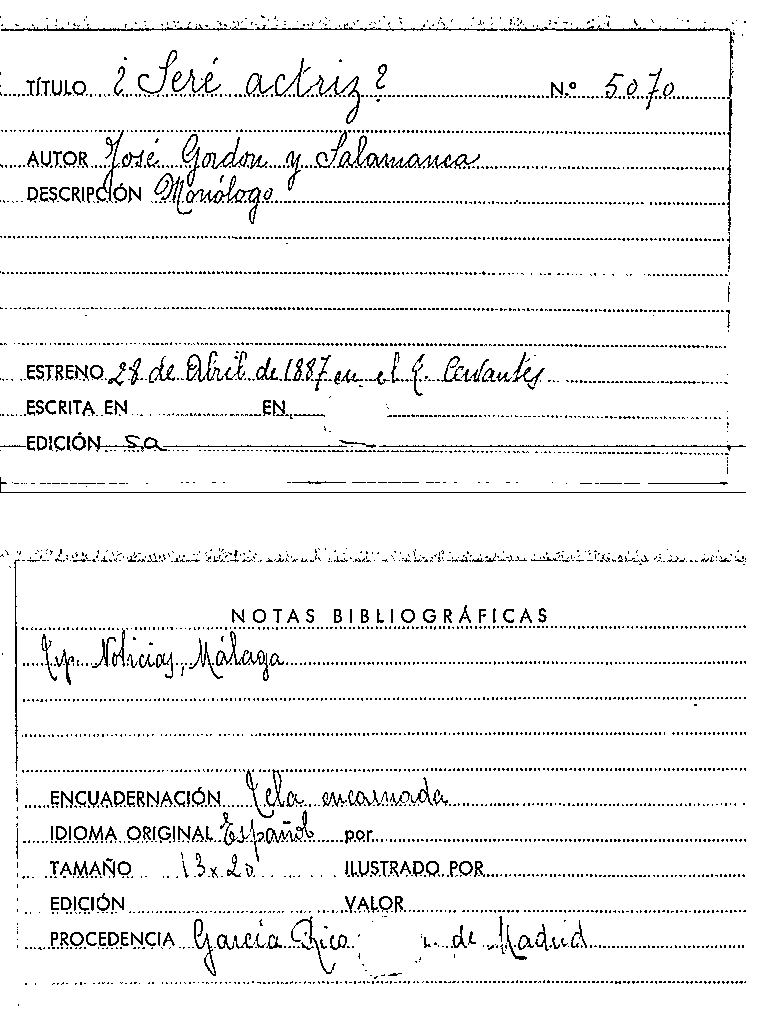 TÍTULO ¿Seré actriz? N.º 5070
AUTOR José Gordon y Salamanca
DESCRIPCIÓN Monólogo
ESTRENO 28 de Abril de 1887 en el T. Cervantes
ESCRITA EN EN
EDICIÓN sa
NOTAS BIBLIOGRÁFICAS
Tip. Noticias, Málaga
ENCUADERNACIÓN Tela encarnada
IDIOMA ORIGINAL Español por
TAMAÑO 13 x 20 ILUSTRADO POR
EDICIÓN VALOR
PROCEDENCIA García Rico de Madrid